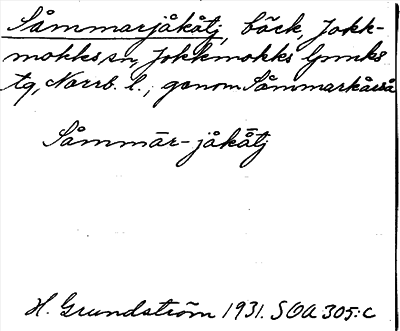 Såmmarjåkåtj, bäck, Jokk-
mokks sn, Jokkmokks lpmks
tg, Norrb. l.; genom Såmmarkårså
Såmmār-jåkåtj
H. Grundström 1931. SOA 305:C